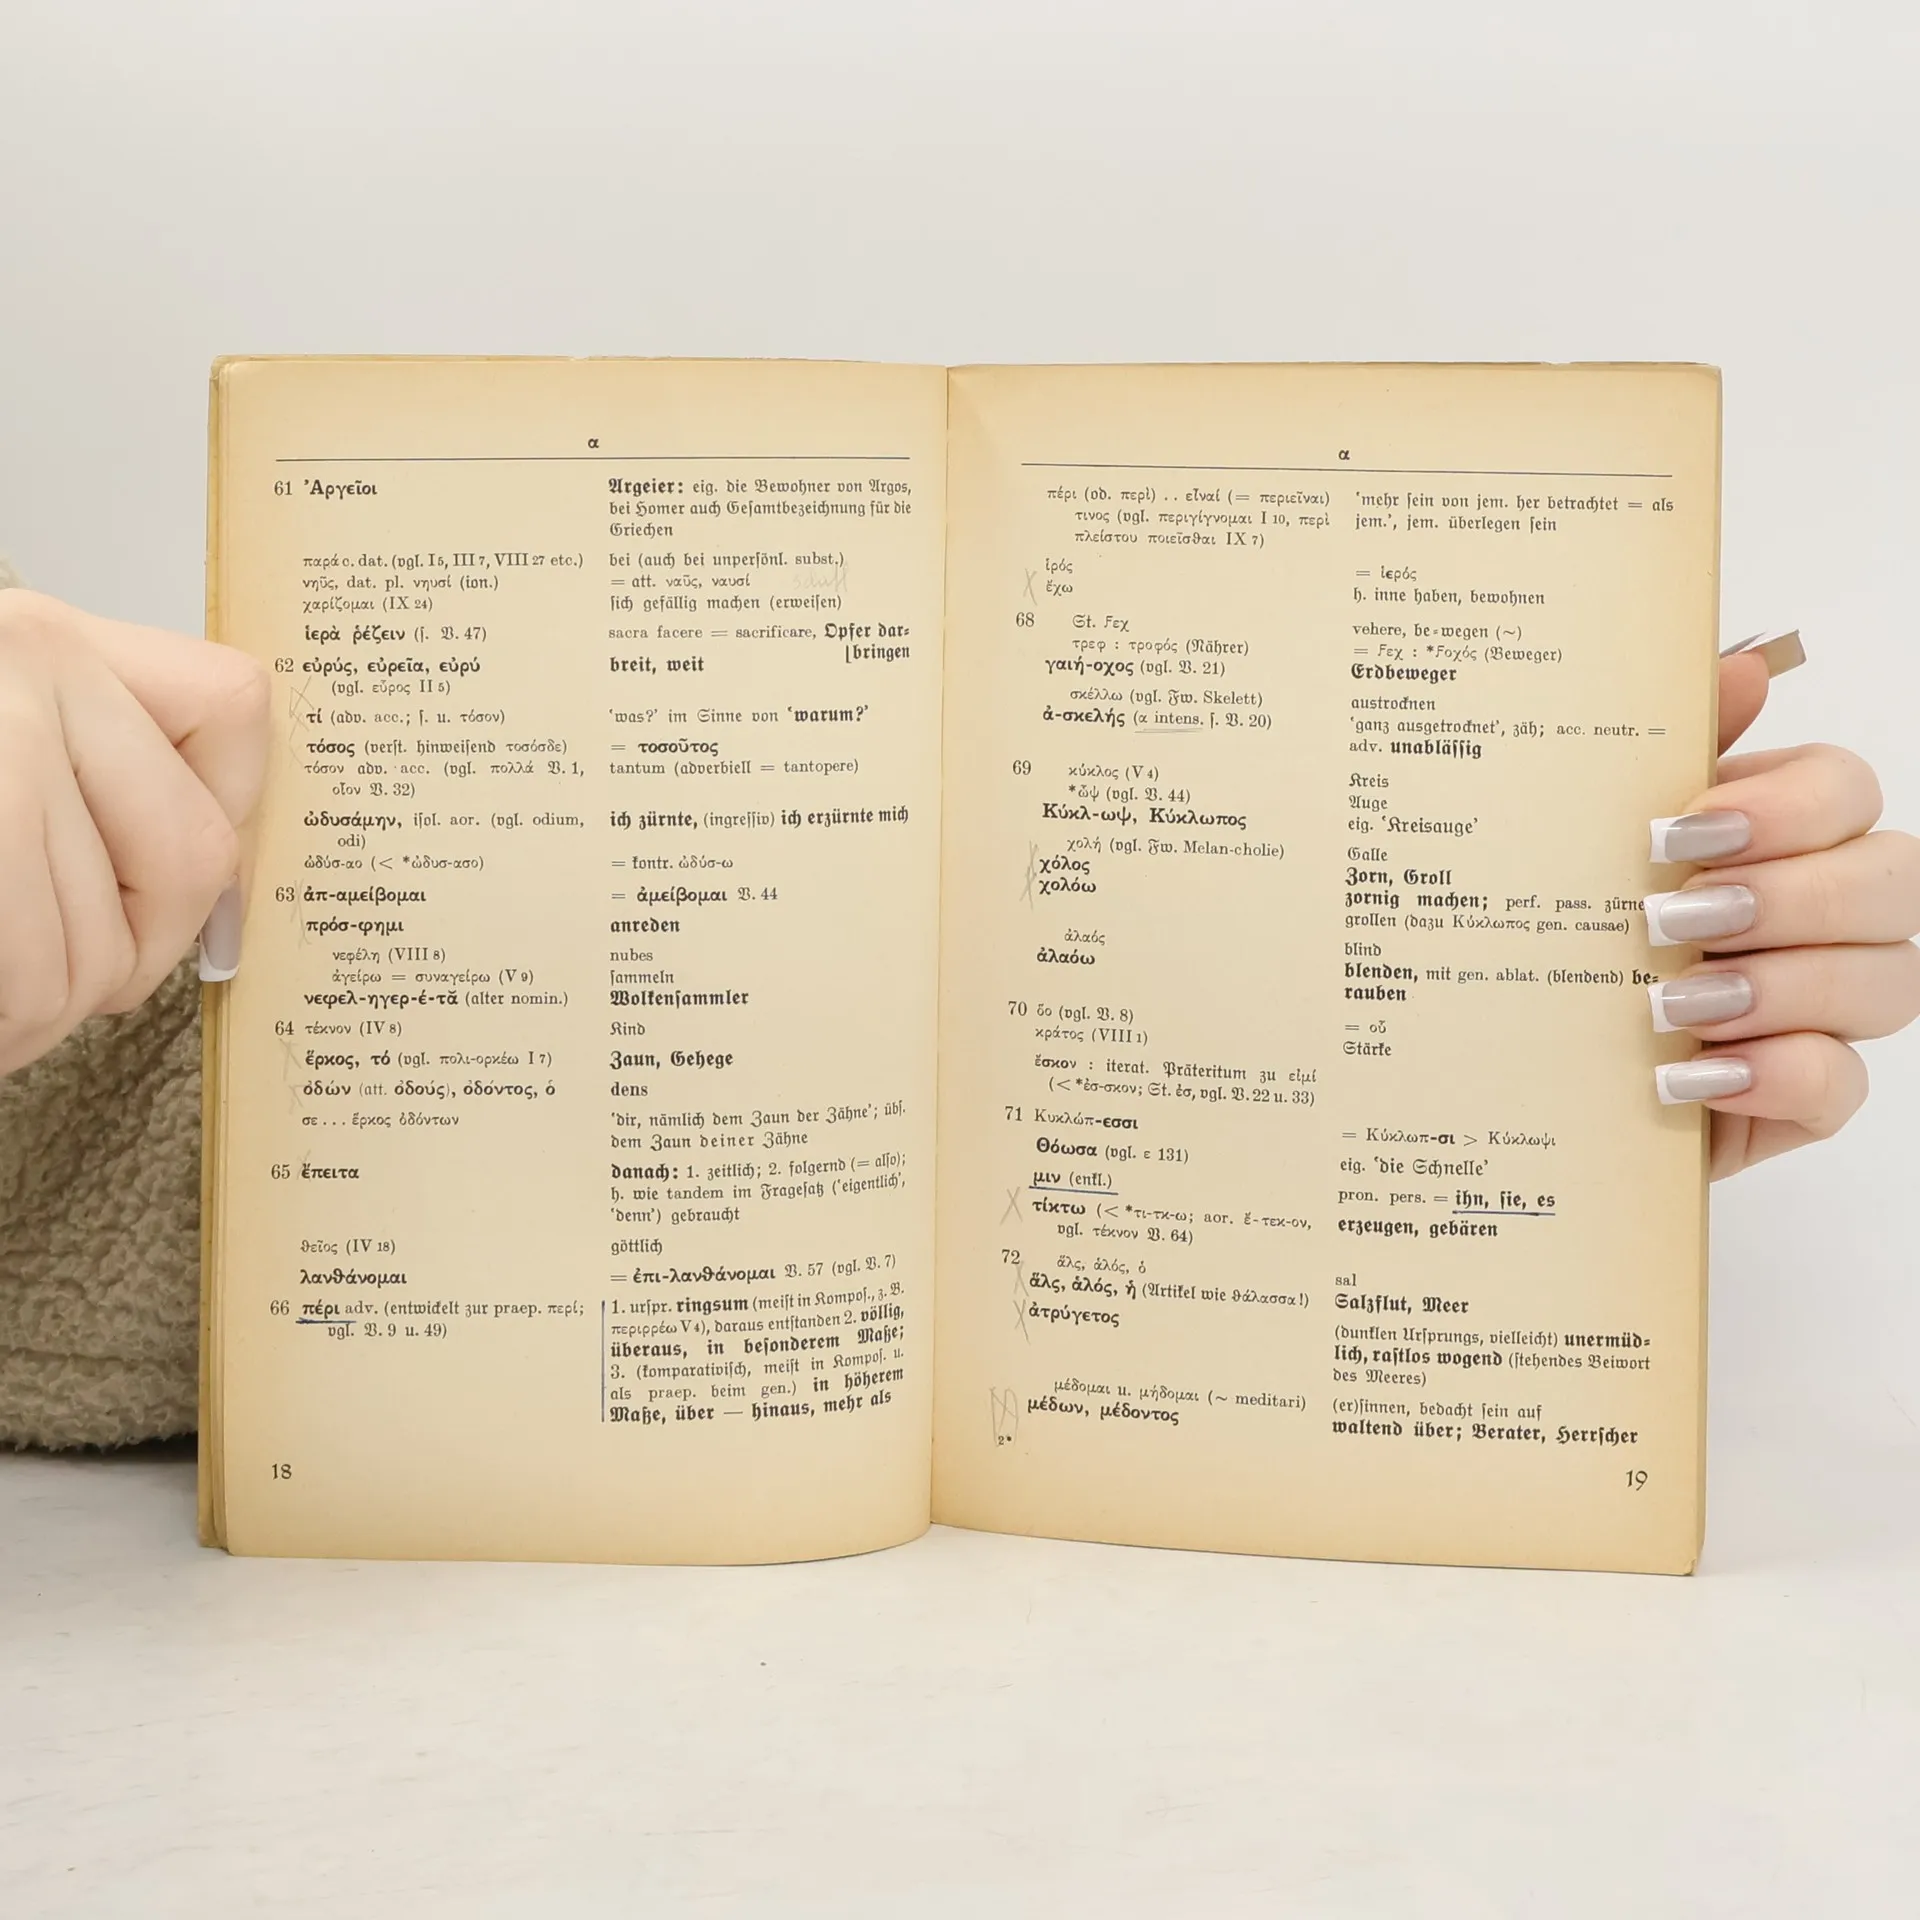 α
61 Ἀργεῖοι
Argeier: eig. die Bewohner von Argos,
bei Homer auch Gesamtbezeichnung für die
Griechen
παρά c. dat. (vgl. I 5, III 7, VIII 27 etc.)
bei (auch bei unpersönl. subst.)
νηῦς, dat. pl. νηυσί (ion.)
= att. ναῦς, ναυσί
χαρίζομαι (IX 24)
sich gefällig machen (erweisen)
ἱερὰ ῥέζειν (s. V. 47)
sacra facere = sacrificare, Opfer dar=
⌊bringen
62 εὐρύς, εὐρεῖα, εὐρύ
breit, weit
(vgl. εὖρος II 5)
τί (adv. acc.; s. u. τόσον)
‘was?’ im Sinne von ‘warum?’
τόσος (verst. hinweisend τοσόσδε)
= τοσοῦτος
τόσον adv. acc. (vgl. πολλά V. 1,
tantum (adverbiell = tantopere)
οἷον V. 32)
ὠδυσάμην, isol. aor. (vgl. odium,
ich zürnte, (ingressiv) ich erzürnte mich
odi)
ὠδύσ-αο (< *ὠδυσ-ασο)
= kontr. ὠδύσ-ω
63 ἀπ-αμείβομαι
= ἀμείβομαι V. 44
πρόσ-φημι
anreden
νεφέλη (VIII 8)
nubes
ἀγείρω = συναγείρω (V 9)
sammeln
νεφελ-ηγερ-έ-τᾰ (alter nomin.)
Wolkensammler
64 τέκνον (IV 8)
Kind
ἕρκος, τό (vgl. πολι-ορκέω I 7)
Zaun, Gehege
ὀδών (att. ὀδούς), ὀδόντος, ὁ
dens
σε ... ἕρκος ὀδόντων
‘dir, nämlich dem Zaun der Zähne’; übs.
dem Zaun deiner Zähne
65 ἔπειτα
danach: 1. zeitlich; 2. folgernd (= also);
h. wie tandem im Fragesatz (‘eigentlich’,
‘denn’) gebraucht
θεῖος (IV 18)
göttlich
λανθάνομαι
= ἐπι-λανθάνομαι V. 57 (vgl. V. 7)
66 πέρι adv. (entwickelt zur praep. περί;
vgl. V. 9 u. 49)
1. urspr. ringsum (meist in Kompos., z. B.
περιρρέω V 4), daraus entstanden 2. völlig,
überaus, in besonderem Maße;
3. (komparativisch, meist in Kompos. u.
als praep. beim gen.) in höherem
Maße, über — hinaus, mehr als
18
α
πέρι (od. περὶ) .. εἶναί (= περιεῖναι)
τινος (vgl. περιγίγνομαι I 10, περὶ
πλείστου ποιεῖσθαι IX 7)
‘mehr sein von jem. her betrachtet = als
jem.’, jem. überlegen sein
ἱρός
= ἱερός
ἔχω
h. inne haben, bewohnen
68 St. ϝεχ
vehere, be=wegen (~)
τρεφ : τροφός (Nährer)
= ϝεχ : *ϝοχός (Beweger)
γαιή-οχος (vgl. V. 21)
Erdbeweger
σκέλλω (vgl. Fw. Skelett)
austrocknen
ἀ-σκελής (α intens. s. V. 20)
‘ganz ausgetrocknet’, zäh; acc. neutr. =
adv. unablässig
69 κύκλος (V 4)
Kreis
*ὤψ (vgl. V. 44)
Auge
Κύκλ-ωψ, Κύκλωπος
eig. ‘Kreisauge’
χολή (vgl. Fw. Melan-cholie)
Galle
χόλος
Zorn, Groll
χολόω
zornig machen; perf. pass. zürne
grollen (dazu Κύκλωπος gen. causae)
ἀλαός
blind
ἀλαόω
blenden, mit gen. ablat. (blendend) be=
rauben
70 ὅο (vgl. V. 8)
= οὗ
κράτος (VIII 1)
Stärke
ἔσκον : iterat. Präteritum zu εἰμί
(< *ἐσ-σκον; St. ἐσ, vgl. V. 22 u. 33)
71 Κυκλώπ-εσσι
= Κύκλωπ-σι > Κύκλωψι
Θόωσα (vgl. ε 131)
eig. ‘die Schnelle’
μιν (enkl.)
pron. pers. = ihn, sie, es
τίκτω (< *τι-τκ-ω; aor. ἔ-τεκ-ον,
erzeugen, gebären
vgl. τέκνον V. 64)
72 ἅλς, ἁλός, ὁ
sal
ἅλς, ἁλός, ἡ (Artikel wie θάλασσα!)
Salzflut, Meer
ἀτρύγετος
(dunklen Ursprungs, vielleicht) unermüd=
lich, rastlos wogend (stehendes Beiwort
des Meeres)
μέδομαι u. μήδομαι (~ meditari)
(er)sinnen, bedacht sein auf
μέδων, μέδοντος
waltend über; Berater, Herrscher
2*
19